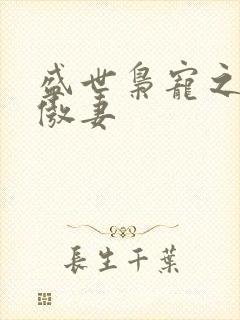 盛世梟寵之
傲妻
長生千葉